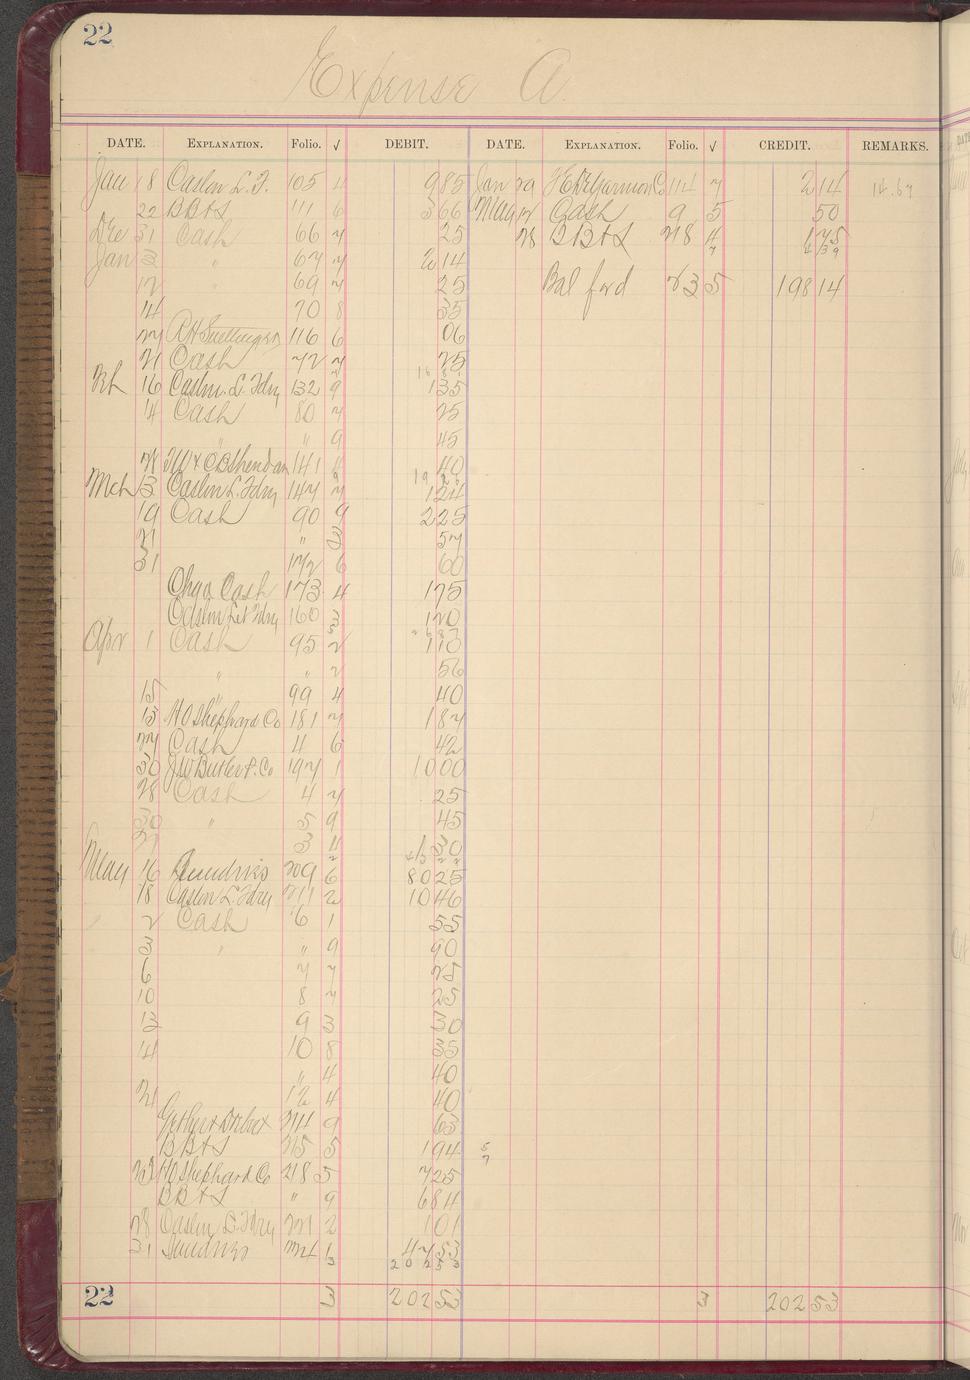 22
Expense A
DATE. EXPLANATION. Folio. √ DEBIT. DATE. EXPLANATION. Folio. √ CREDIT. REMARKS.
Jan 18 Caslon L. F. 105 4 9 85 Jan 29 114 7 2 14 14.67
22 BB&S 111 6 3 66 Cash 9 5 50
Dec 31 Cash 66 7 25 28 BB&S 218 4 1 75
Jan 3 " 67 7 2 14 4 39
12 " 69 7 25 Bal ford 23 5 198 14
14 70 8 35
27 116 6 06
21 Cash 72 7 25
16 Caslon L. Fdry 132 9 1 35
14 Cash 80 7 25
" " 9 45
28 141 4 40
Mch 13 Caslon L. Fdry 147 7 1 24
19 Cash 90 9 2 25
21 " 3 57
31 172 6 60
Chgo Cash 173 4 1 75
Caslon Let Fdry 160 3 1 20
Apr 1 Cash 95 2 1 10
" " 2 56
15 " 99 4 40
13 H O Shephard Co 181 7 1 87
27 Cash 4 6 42
30 J W Butler P. Co 197 1 10 00
28 Cash 4 7 25
30 " 5 9 45
27 3 4 1 30
May 16 Sundries 209 6 80 25
18 Caslon L. Fdry 211 2 10 46
2 Cash 6 1 55
3 " " 9 90
6 7 7 25
10 8 7 25
12 9 3 30
14 10 8 35
" 4 40
21 12 4 40
214 9 63
BB&S 215 5 1 94
H O Shephard Co 218 5 7 25
BB&S " 9 6 84
28 Caslon L. Fdry 221 2 1 01
31 Sundries 224 1 47 53
3 202 53
22 3 202 53 3 202 53